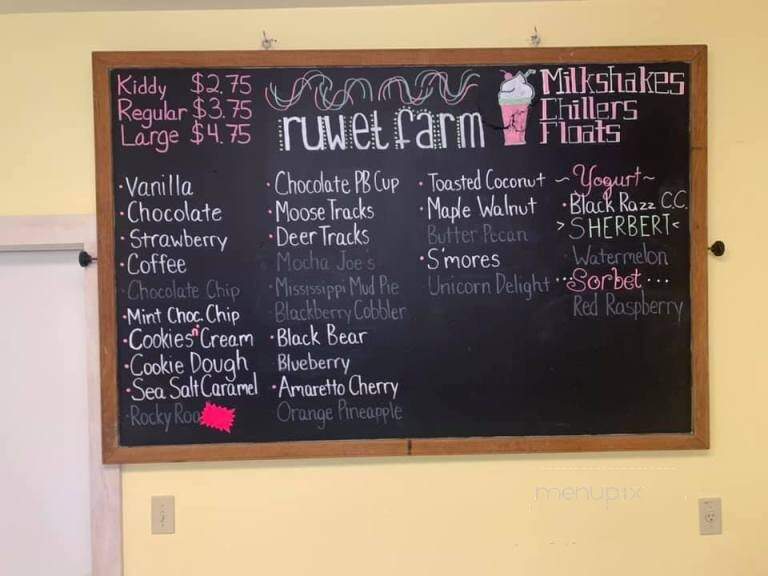 Kiddy $2.75
Regular $3.75
Large $4.75
ruwet farm
Milkshakes
Chillers
Floats
·Vanilla
·Chocolate
·Strawberry
·Coffee
·Chocolate Chip
·Mint Choc. Chip
·Cookies n' Cream
·Cookie Dough
·Sea Salt Caramel
·Rocky Roa
·Chocolate PB Cup
·Moose Tracks
·Deer Tracks
·Mocha Joe's
·Mississippi Mud Pie
·Blackberry Cobbler
·Black Bear
Blueberry
·Amaretto Cherry
Orange Pineapple
·Toasted Coconut
·Maple Walnut
Butter Pecan
·S'mores
Unicorn Delight
~Yogurt~
·Black Razz C.C.
>SHERBERT<
Watermelon
···Sorbet···
Red Raspberry
menupix